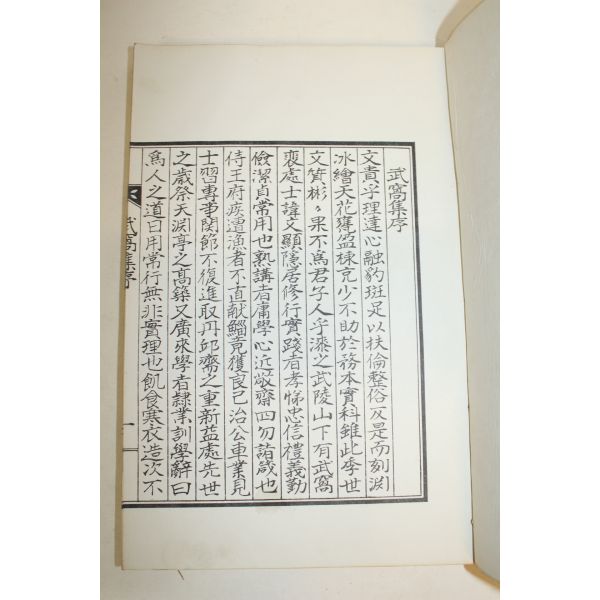 武窩集序
文貴乎理達心融豹斑足以扶倫整俗反是而刻渕
冰繪天花獲盈棟充少不助於務本實科雖此季世
文質彬〻果不爲君子人乎漆之武陵山下有武窩
裵處士諱文顯隱居修行實踐者孝悌忠信禮義勤
儉潔貞常用也熟講者庸學心近敬齋四勿諸箴也
侍王府疾遭漁者不直献鯔竟獲良已治公車業見
士習專事関節不復進取丹邱齋之重新藍處先世
之歲祭天淵亭之高築又廣來學者隷業訓學辭曰
爲人之道日用常行無非實理也飢食寒衣造次不
武窩集序
一